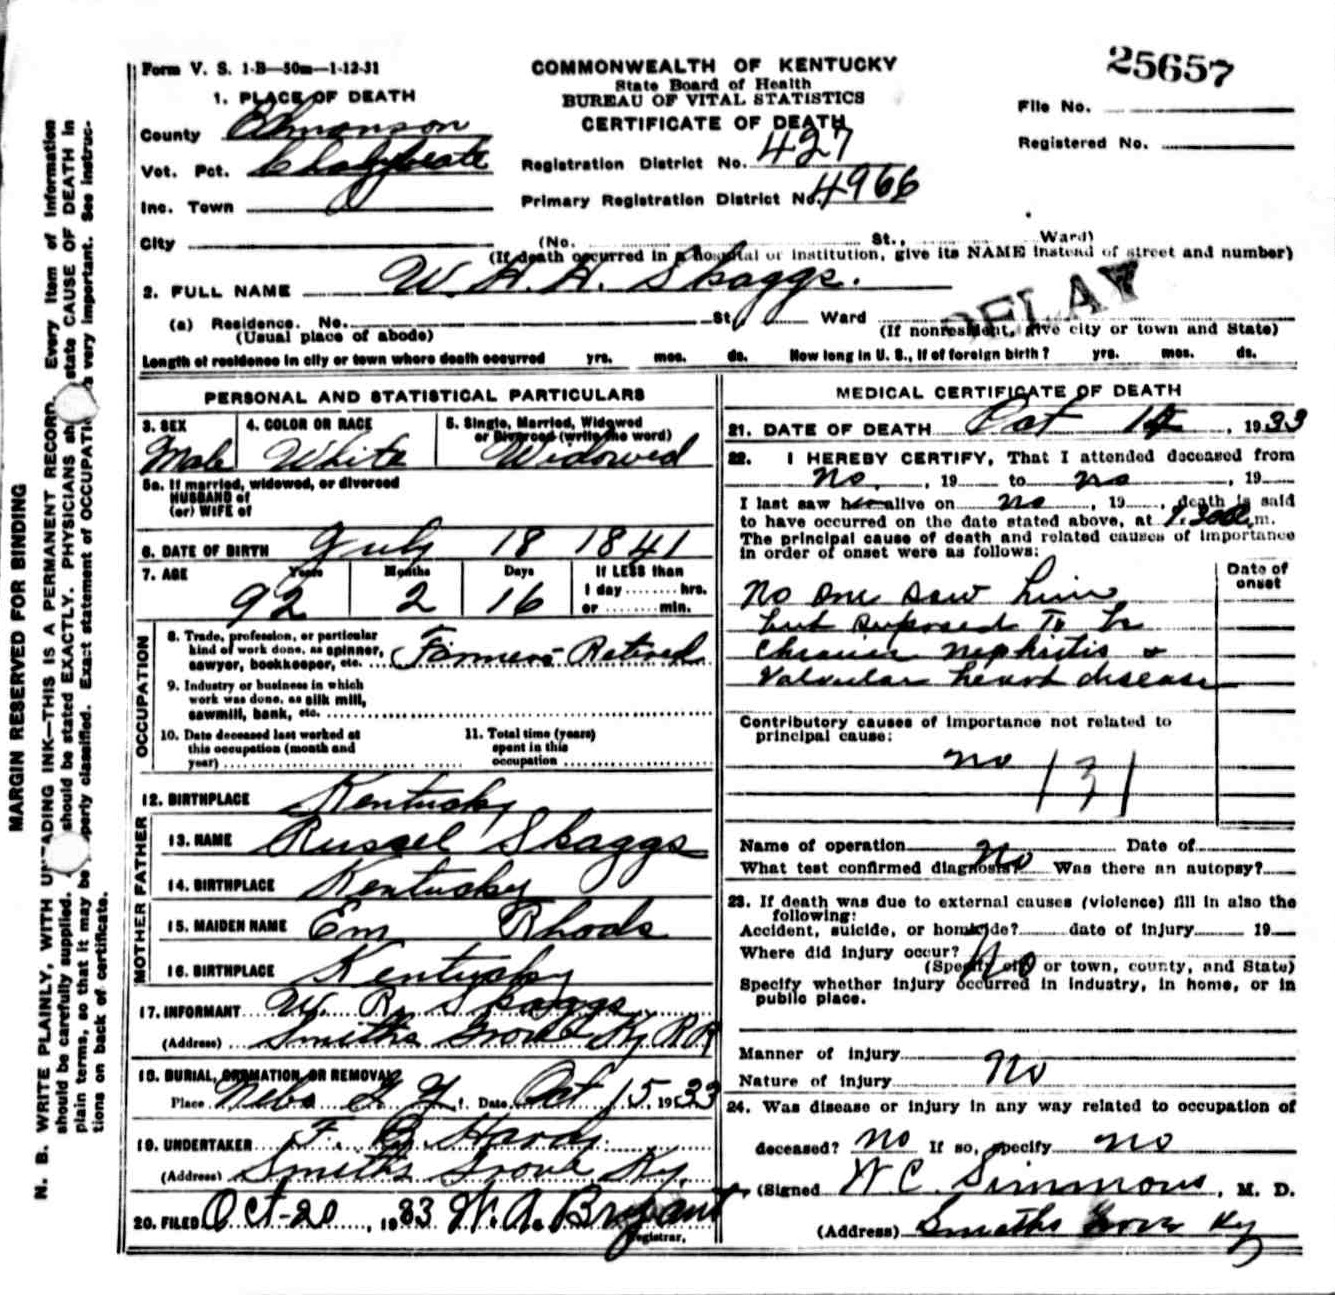 25657
Form V. S. 1-B—50m—1-12-31
COMMONWEALTH OF KENTUCKY
State Board of Health
BUREAU OF VITAL STATISTICS
CERTIFICATE OF DEATH
File No.
Registered No.
1. PLACE OF DEATH
County Edmonson
Vot. Pct. Chalybeate
Inc. Town
City
Registration District No. 427
Primary Registration District No. 4966
(No. St., Ward)
(If death occurred in a hospital or institution, give its NAME instead of street and number)
2. FULL NAME W. H. H. Skaggs.
DELAY
(a) Residence. No. St., Ward
(Usual place of abode) (If nonresident, give city or town and State)
Length of residence in city or town where death occurred yrs. mos. ds. How long in U. S., if of foreign birth? yrs. mos. ds.
PERSONAL AND STATISTICAL PARTICULARS
3. SEX Male
4. COLOR OR RACE White
5. Single, Married, Widowed or Divorced (write the word) Widowed
5a. If married, widowed, or divorced
HUSBAND of
(or) WIFE of
6. DATE OF BIRTH July 18 1841
7. AGE Years Months Days If LESS than
92 2 16 1 day hrs.
or min.
OCCUPATION
8. Trade, profession, or particular
kind of work done, as spinner,
sawyer, bookkeeper, etc. Farmer- Retired
9. Industry or business in which
work was done, as silk mill,
sawmill, bank, etc.
10. Date deceased last worked at
this occupation (month and
year)
11. Total time (years)
spent in this
occupation
12. BIRTHPLACE Kentucky
FATHER
13. NAME Russel Skaggs
14. BIRTHPLACE Kentucky
MOTHER
15. MAIDEN NAME Em Rhods
16. BIRTHPLACE Kentucky
17. INFORMANT W. R. Skaggs
(Address) Smiths Grove Ky
18. BURIAL, CREMATION, OR REMOVAL
Place Nebo Date Oct 15, 1933
19. UNDERTAKER
(Address) Smiths Grove Ky.
20. FILED Oct-20, 1933 W. A. Bryant
Registrar.
MEDICAL CERTIFICATE OF DEATH
21. DATE OF DEATH Oct 14, 1933
22. I HEREBY CERTIFY, That I attended deceased from
No, 19 to no, 19
I last saw h alive on no, 19, death is said
to have occurred on the date stated above, at m.
The principal cause of death and related causes of importance
in order of onset were as follows:
Date of
onset
No one saw him
but suposed To be
chronic nephritis &
Valvular heart disease
Contributory causes of importance not related to
principal cause:
no 131
Name of operation Date of
What test confirmed diagnosis? No Was there an autopsy?
23. If death was due to external causes (violence) fill in also the
following:
Accident, suicide, or homicide? date of injury 19
Where did injury occur? No
(Specify city or town, county, and State)
Specify whether injury occurred in industry, in home, or in
public place.
Manner of injury
Nature of injury No
24. Was disease or injury in any way related to occupation of
deceased? no If so, specify no
(Signed W C Simmons, M. D.
(Address) Smiths Grove Ky
MARGIN RESERVED FOR BINDING
N. B. WRITE PLAINLY, WITH UNFADING INK—THIS IS A PERMANENT RECORD. Every item of information
should be carefully supplied. should be stated EXACTLY. PHYSICIANS should state CAUSE OF DEATH in
plain terms, so that it may be properly classified. Exact statement of OCCUPATION is very important. See instruc-
tions on back of certificate.